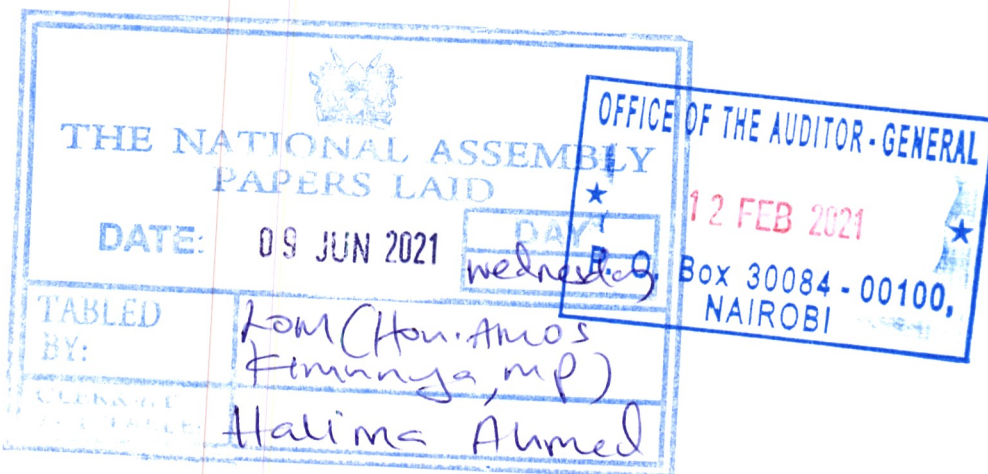 THE NATIONAL ASSEMBLY
PAPERS LAID
DATE: 09 JUN 2021
DAY
wednesday
TABLED
BY:
LOM (Hon. Amos
Kimunya, MP)
CLERK AT
THE TABLE:
Halima Ahmed
OFFICE OF THE AUDITOR-GENERAL
12 FEB 2021
P. O. Box 30084 - 00100,
NAIROBI